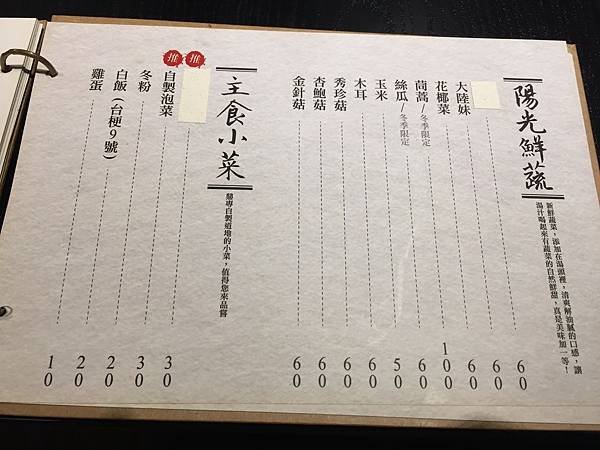 陽光鮮蔬
新鮮蔬菜，添加在湯頭裡，清爽解油膩的口感，讓
湯汁喝起來有蔬菜的自然鮮甜，真是美味加一等！
60
大陸妹 60
花椰菜 60
茼蒿/冬季限定 100
絲瓜/冬季限定 60
玉米 50
木耳 60
秀珍菇 60
杏鮑菇 60
金針菇 60
主食小菜
勝專自製道地的小菜，值得您來品嘗
推 30
推 自製泡菜 30
冬粉 20
白飯(台梗9號) 20
雞蛋 10